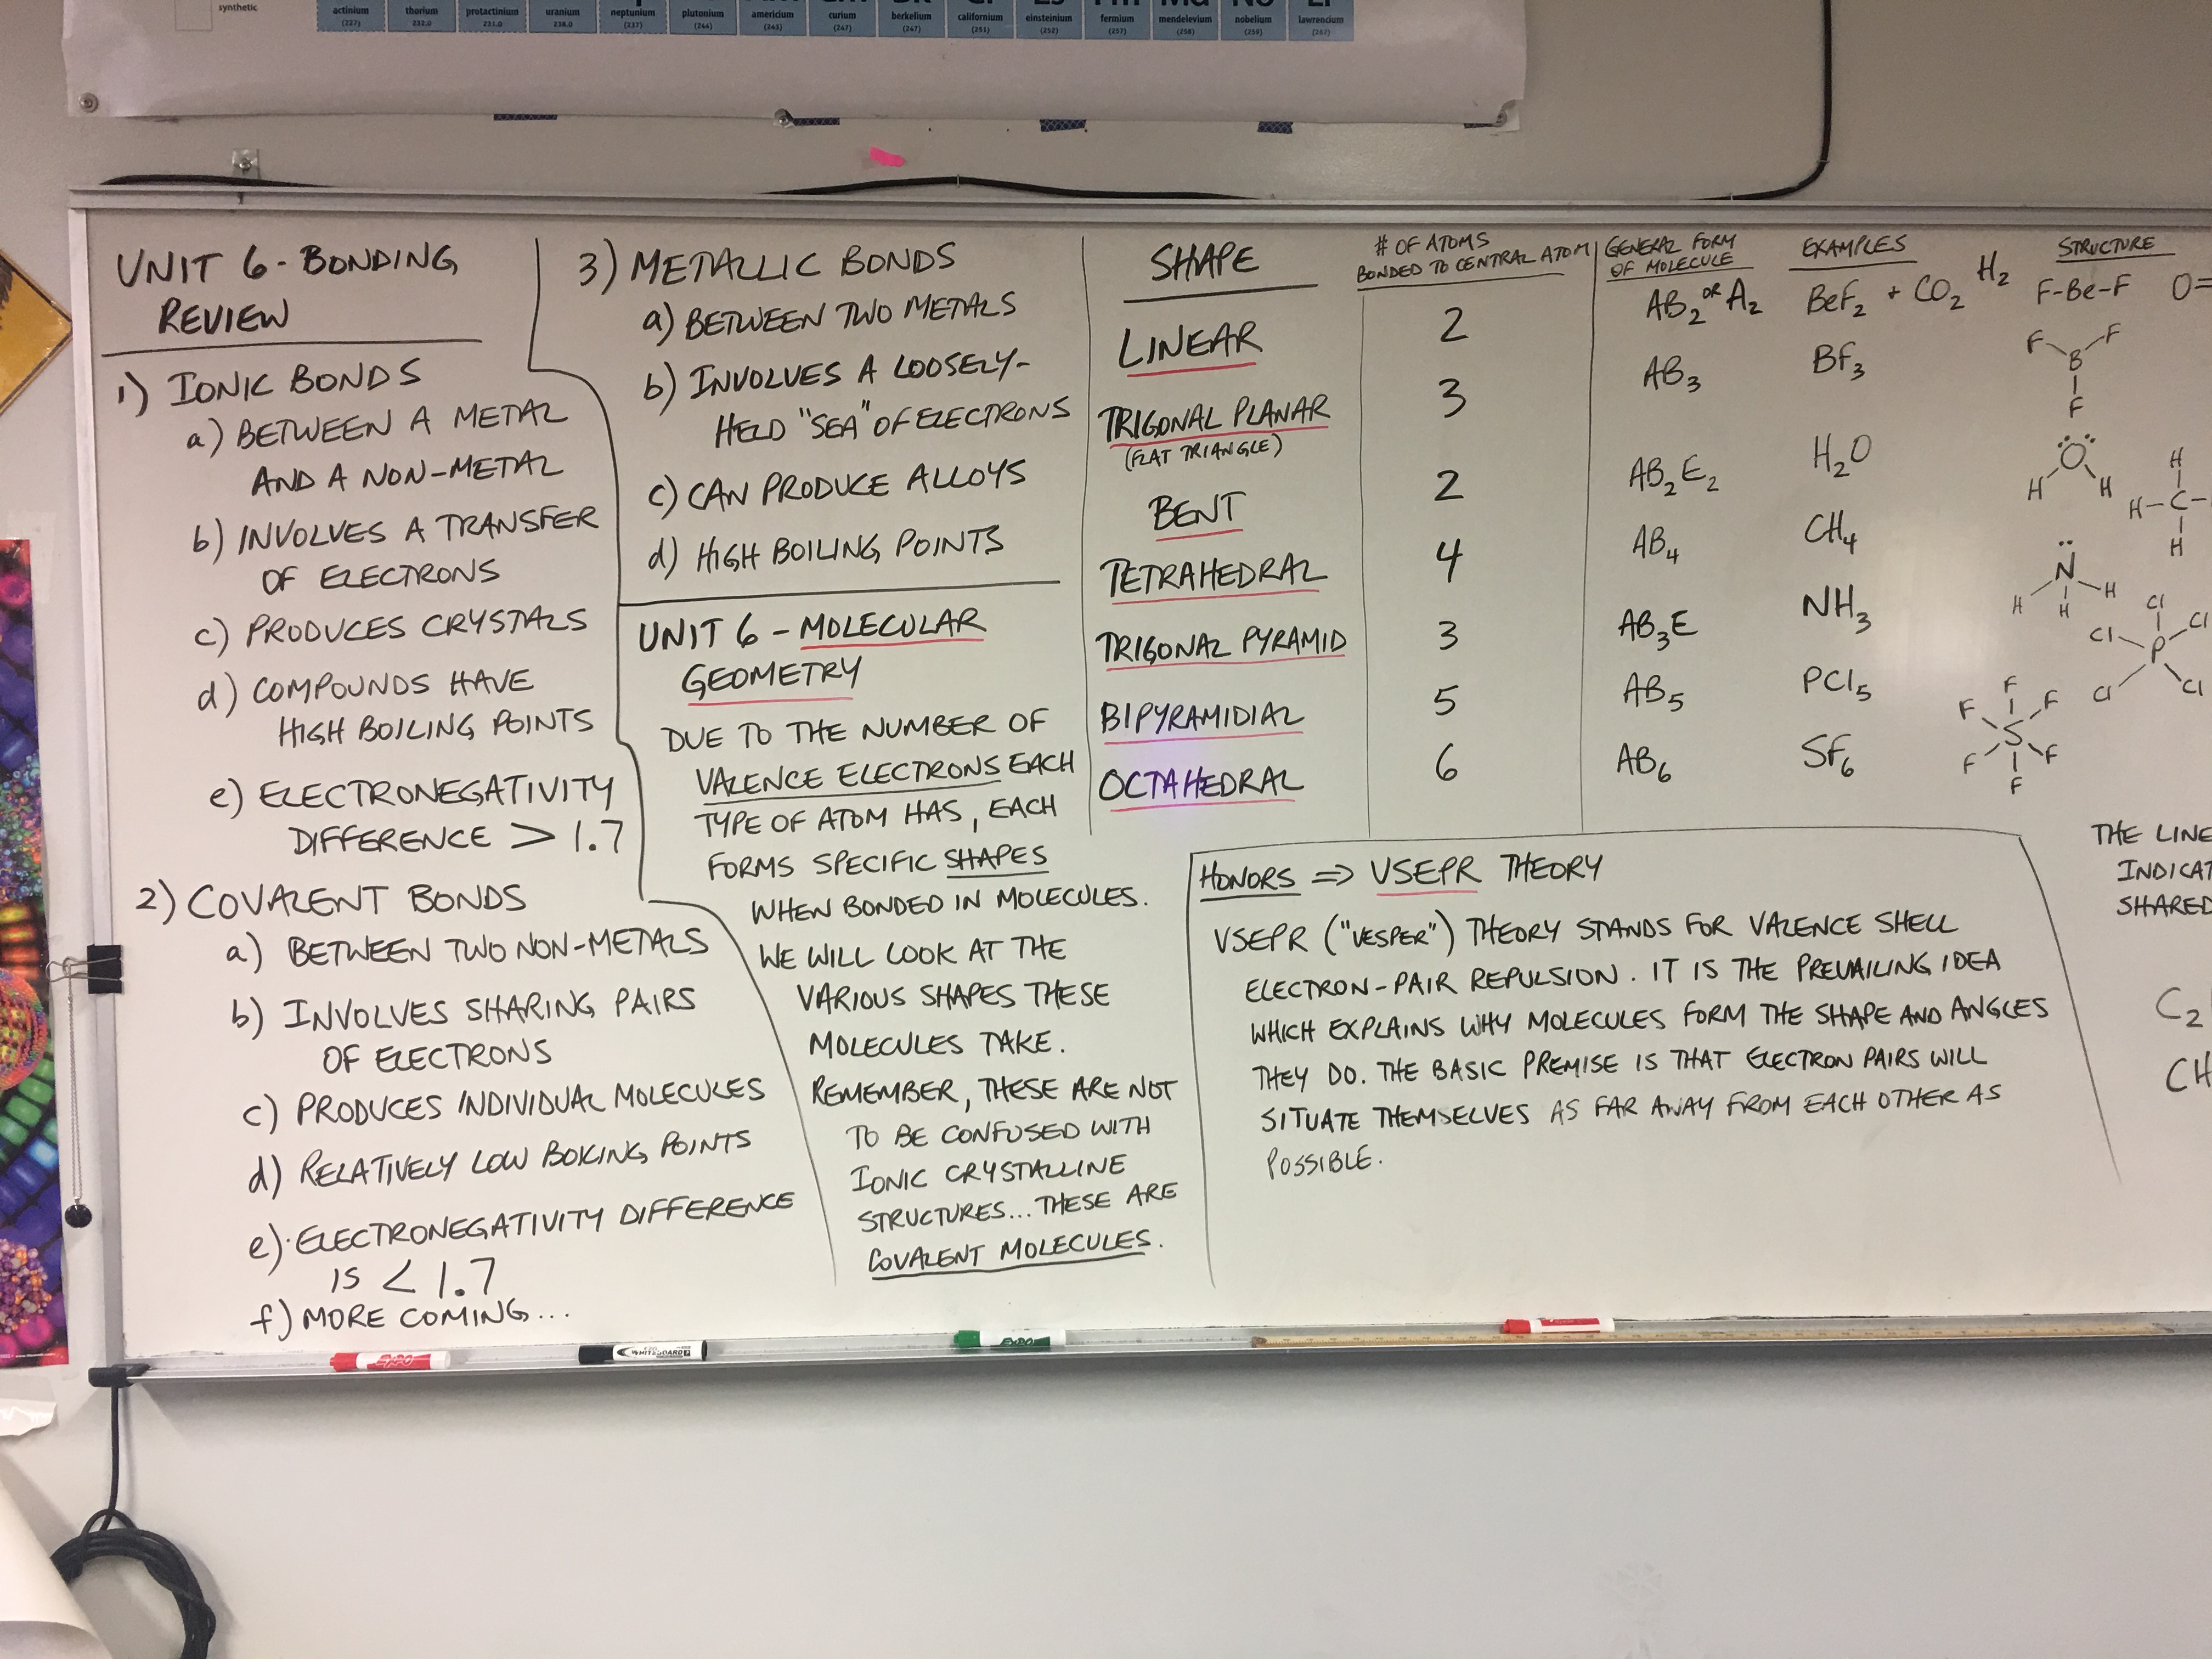 synthetic
actinium
(227)
thorium
232.0
protactinium
231.0
uranium
238.0
neptunium
(237)
plutonium
(244)
americium
(243)
curium
(247)
berkelium
(247)
californium
(251)
einsteinium
(252)
fermium
(257)
mendelevium
(258)
nobelium
(259)
lawrencium
(262)
UNIT 6 - BONDING
REVIEW
1) IONIC BONDS
a) BETWEEN A METAL
AND A NON-METAL
b) INVOLVES A TRANSFER
OF ELECTRONS
c) PRODUCES CRYSTALS
d) COMPOUNDS HAVE
HIGH BOILING POINTS
e) ELECTRONEGATIVITY
DIFFERENCE > 1.7
2) COVALENT BONDS
a) BETWEEN TWO NON-METALS
b) INVOLVES SHARING PAIRS
OF ELECTRONS
c) PRODUCES INDIVIDUAL MOLECULES
d) RELATIVELY LOW BOILING POINTS
e) ELECTRONEGATIVITY DIFFERENCE
IS < 1.7
f) MORE COMING...
3) METALLIC BONDS
a) BETWEEN TWO METALS
b) INVOLVES A LOOSELY-
HELD "SEA" OF ELECTRONS
c) CAN PRODUCE ALLOYS
d) HIGH BOILING POINTS
UNIT 6 - MOLECULAR
GEOMETRY
DUE TO THE NUMBER OF
VALENCE ELECTRONS EACH
TYPE OF ATOM HAS, EACH
FORMS SPECIFIC SHAPES
WHEN BONDED IN MOLECULES.
WE WILL LOOK AT THE
VARIOUS SHAPES THESE
MOLECULES TAKE.
REMEMBER, THESE ARE NOT
TO BE CONFUSED WITH
IONIC CRYSTALLINE
STRUCTURES... THESE ARE
COVALENT MOLECULES.
SHAPE # OF ATOMS BONDED TO CENTRAL ATOM GENERAL FORM OF MOLECULE EXAMPLES STRUCTURE
LINEAR 2 AB2 OR A2 BeF2 + CO2 H2 F-Be-F O=
TRIGONAL PLANAR 3 AB3 BF3 F F B F
(FLAT TRIANGLE)
BENT 2 AB2E2 H2O O H H
TETRAHEDRAL 4 AB4 CH4 H H-C- H
TRIGONAL PYRAMID 3 AB3E NH3 N H H H
BIPYRAMIDIAL 5 AB5 PCl5 Cl Cl Cl P Cl Cl
OCTAHEDRAL 6 AB6 SF6 F F F S F F F
HONORS => VSEPR THEORY
VSEPR ("VESPER") THEORY STANDS FOR VALENCE SHELL
ELECTRON-PAIR REPULSION. IT IS THE PREVAILING IDEA
WHICH EXPLAINS WHY MOLECULES FORM THE SHAPE AND ANGLES
THEY DO. THE BASIC PREMISE IS THAT ELECTRON PAIRS WILL
SITUATE THEMSELVES AS FAR AWAY FROM EACH OTHER AS
POSSIBLE.
THE LINE
INDICAT
SHARED
C2
CH
EXPO
WHITEBOARD
EXPO